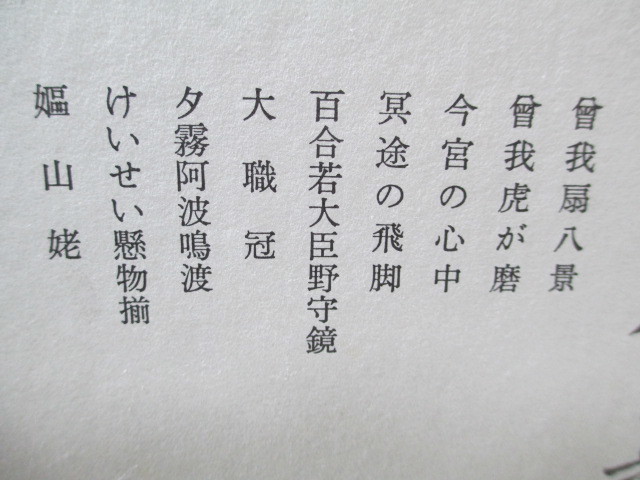 曾我扇八景
曾我虎が磨
今宮の心中
冥途の飛脚
百合若大臣野守鏡
大職冠
夕霧阿波鳴渡
けいせい懸物揃
嫗山姥